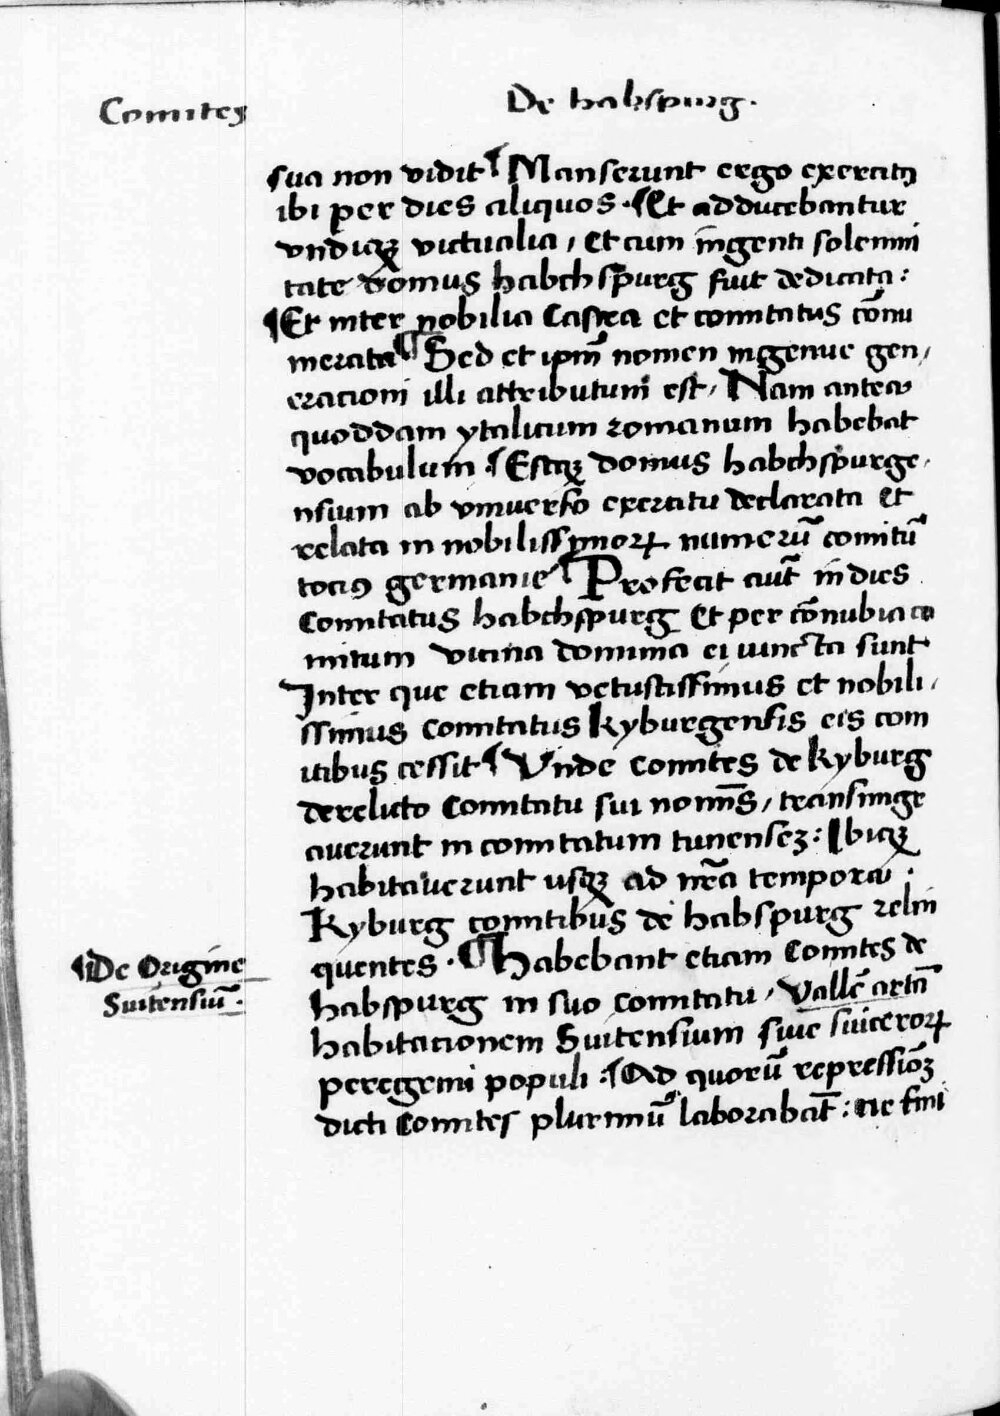 Comites
De habspurg.
sua non vidit ¶ Manserunt ergo exercitꝰ
ibi per dies aliquos · ¶ Et adducebantur
vndiqꝫ victualia, et cum ingenti solemni
tate domus habchspurg fuit dedicata:
¶ Et inter nobilia castra et comitatus cōnu
merata ¶ Sed et ipm̄ nomen ingenue gen,
eracioni illi attributum est, Nam antea
quoddam ytalicum romanum habebat
vocabulum. ¶ Estqꝫ domus habchspurge,
nsium ab vniuerso exercitu declarata et
relata in nobilissimoꝝ numerū comitū
tociꝰ germanie ¶ Profecit aut̄ in dies
Comitatus habchspurg et per cōnubia co
mitum vicina domina ei iuncta sunt
Inter que etiam vetustissimus et nobili,
ssimus Comitatus kyburgensis eis com
itibus cessit ¶ Vnde Comites de kyburg
derelicto Comitatu sui nomīs, transmigr
auerunt in comitatum tunensez: Ibiqꝫ
habitauerunt usqꝫ ad nr̄a tempora.
Kyburg comitibus de habspurg relin
quentes · ¶ Habebant etiam Comites de
habspurg in suo Comitatu, vallē artā
habitacionem Suitensium siue suiceroꝝ
peregrini populi: ¶ Ad quorū repressiōꝫ
dicti Comites plurimū laborabāt: ne fini
¶ De Origine
Suitensiū ·